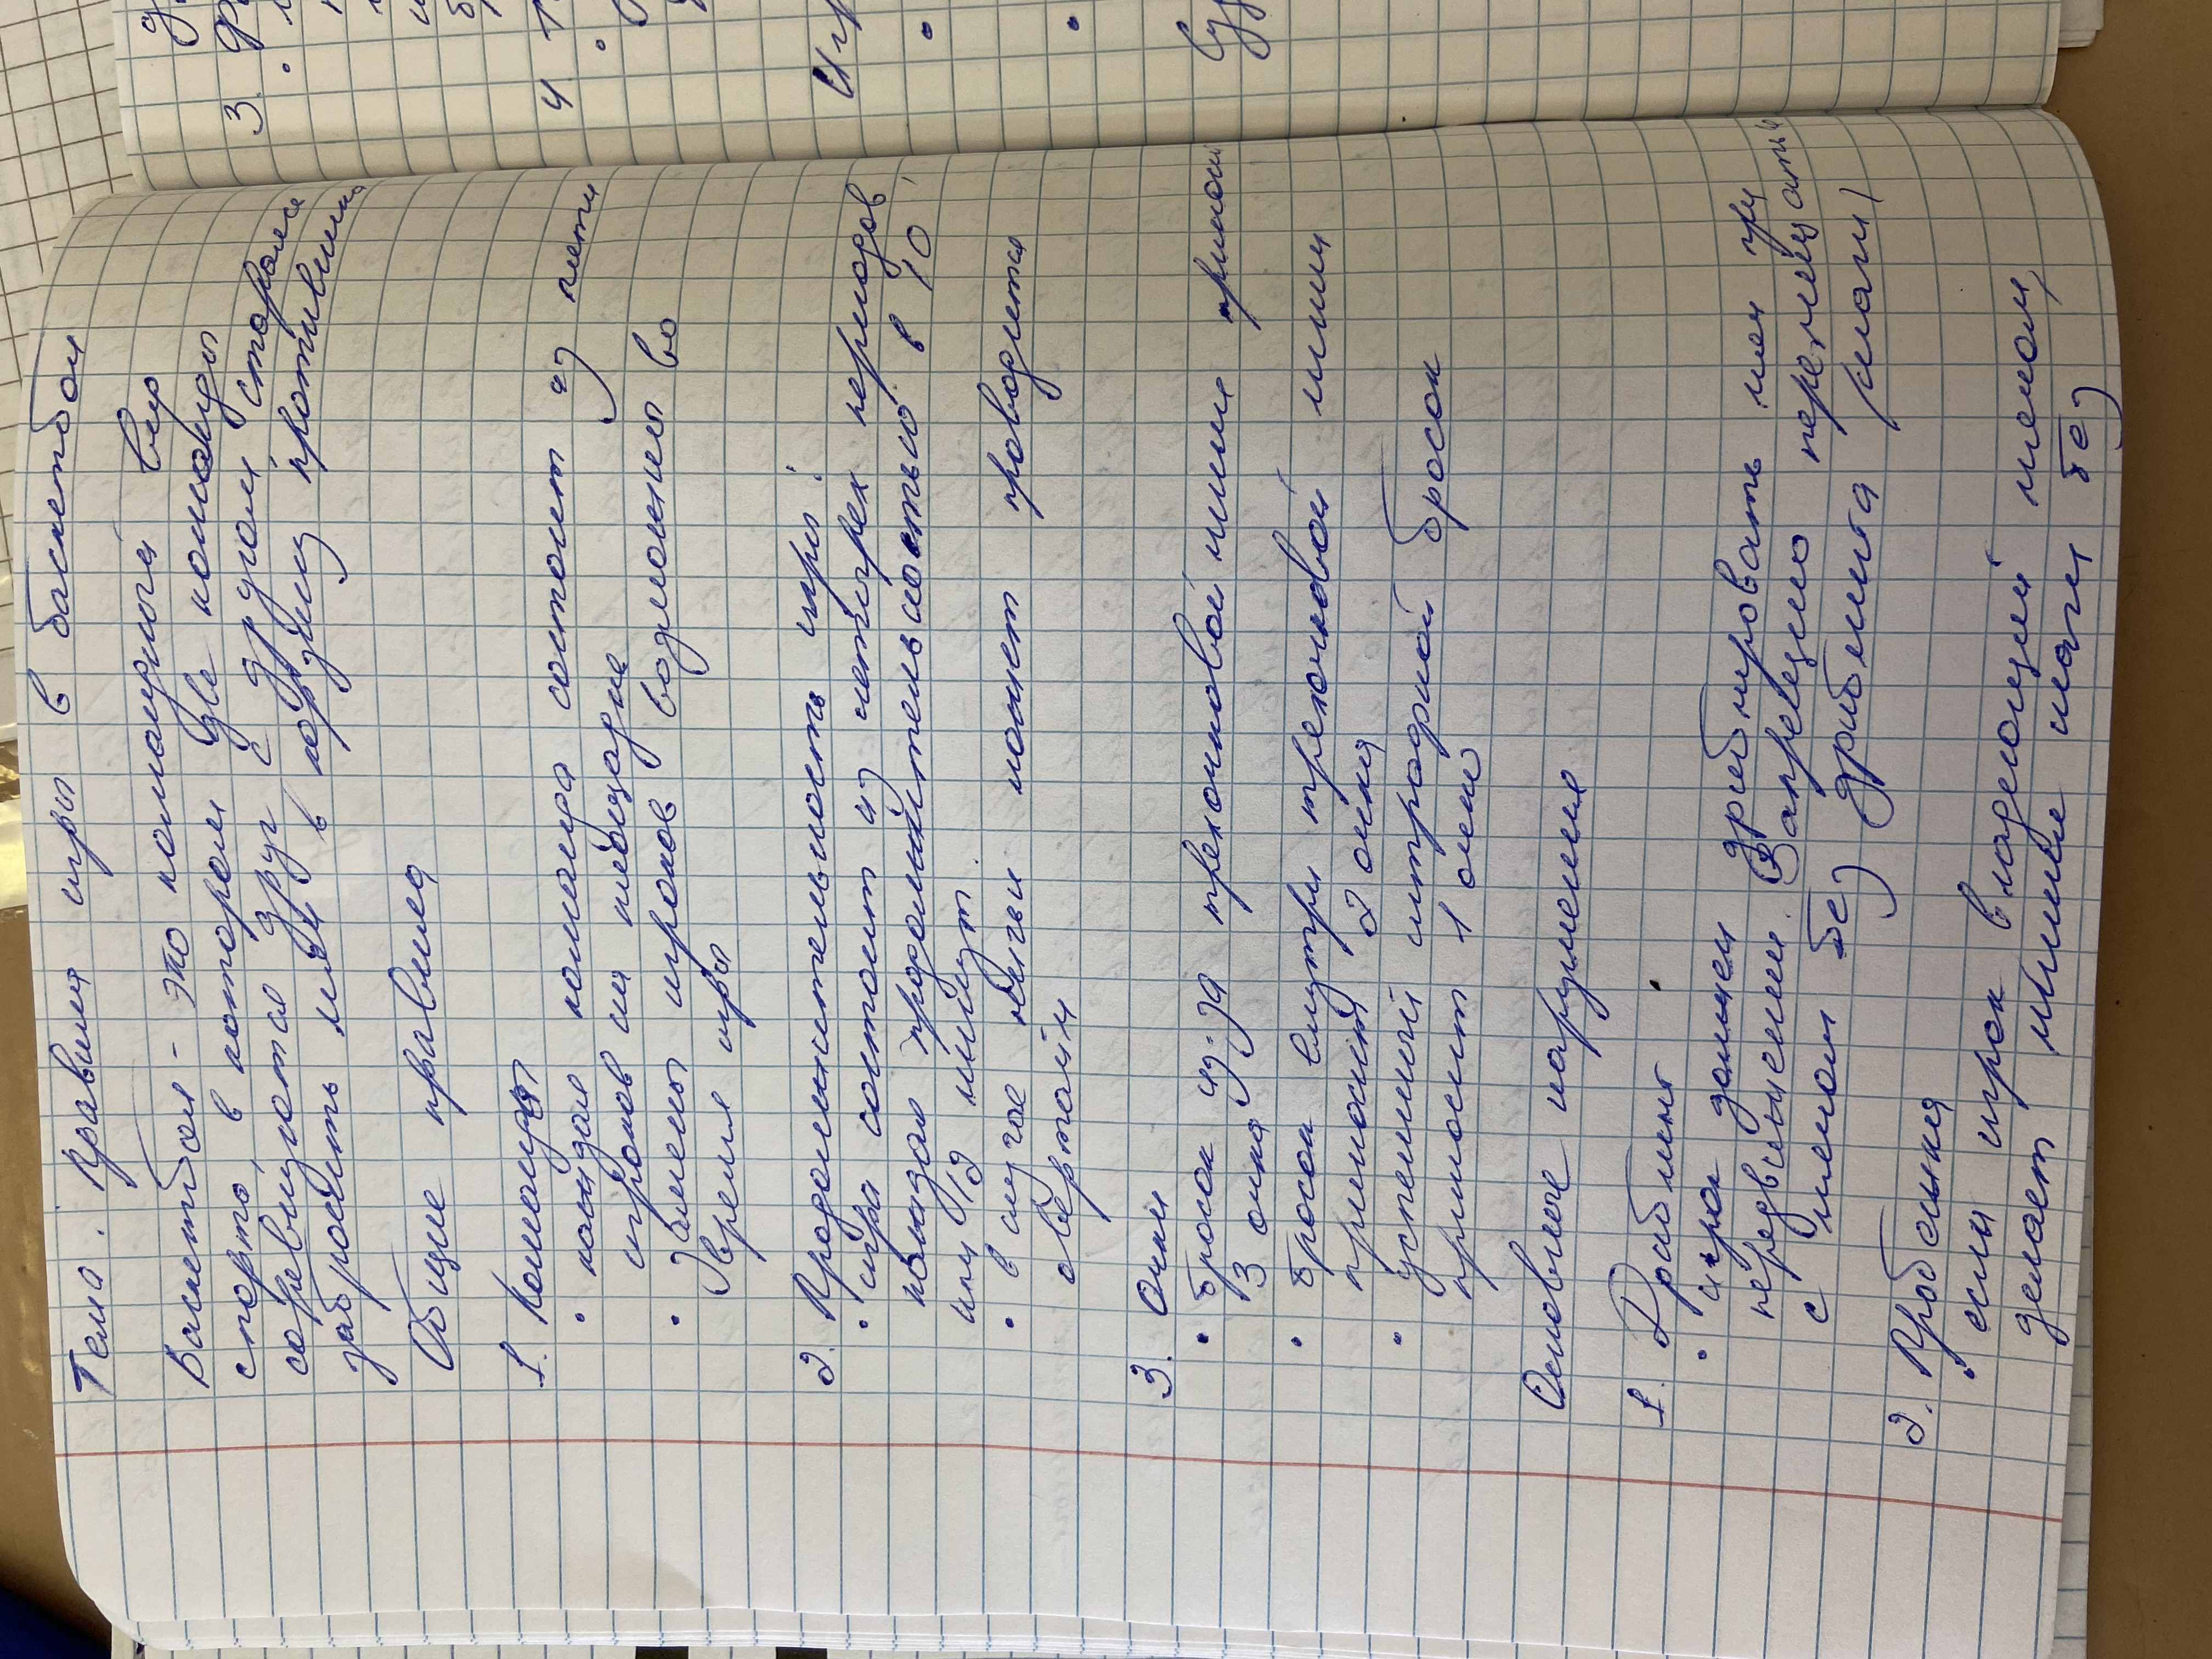 Тема. Правила игры в баскетбол
Баскетбол - это командный вид
спорта, в котором две команды
соревнуются друг с другом стараясь
забросить мяч в корзину противника
Общие правила
1. Команды
• каждая команда состоит из пяти
игроков на площадке
• Замены игроков возможны во
время игры
2. Продолжительность игры:
• игра состоит из четырех периодов
каждая продолжительностью в 10
или 12 минут.
• в случае ничьи может проводится
овертайм
3. Очки
• бросок из-за трехочковой линии приносит
3 очка
• бросок внутри трехочковой линии
приносит 2 очка
• успешный штрафной бросок
приносит 1 очко
Основные нарушения
1. Дриблинг
• игрок должен дриблировать мяч при
передвижении. Запрещено перемещаться
с мячом без дриблинга
2. Пробежка
• если игрок владеющий мячом,
делает лишние шаги без
3.
•
4
•
•
•